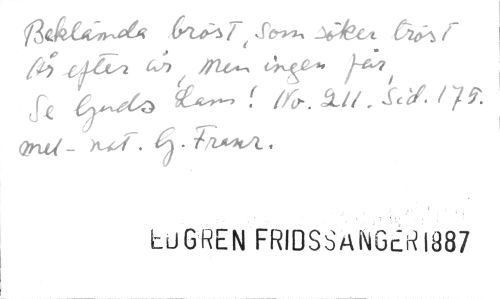 Beklämda bröst, som söker tröst
År efter år, men ingen får,
Se Guds Lam! No. 211. Sid. 175.
mel-not. G. Franz.
EDGREN FRIDSSÅNGER 1887